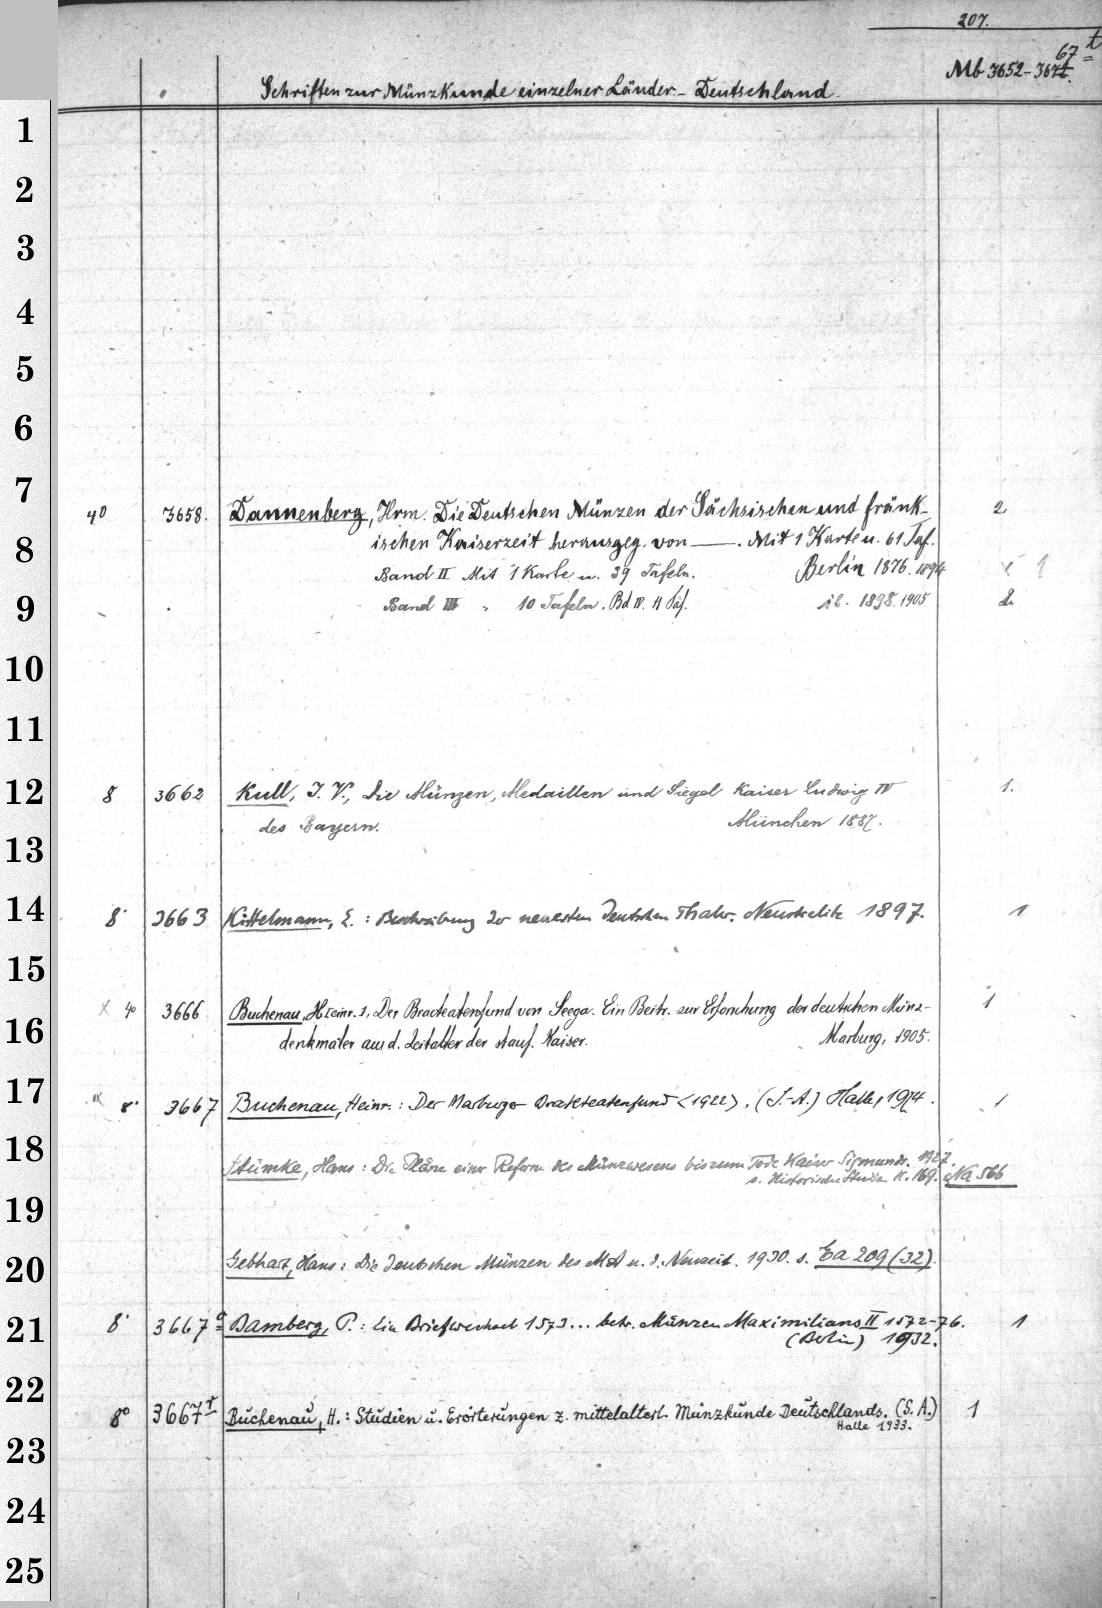 207.
67 t
Mb 3652-367
Schriften zur Münzkunde einzelner Länder.- Deutschland.
1
2
3
4
5
6
7
4° 3658. Dannenberg, Hrm. Die Deutschen Münzen der Sächsischen und fränk-
8
ischen Kaiserzeit herausgeg. von ——. Mit 1 Karte u. 61 Taf. 2
Band II Mit 1 Karte u. 39 Tafeln. Berlin 1876. 1894 1
9
Band III " 10 Tafeln. Bd IV. 11 Taf. ib. 1898. 1905 2.
10
11
12
8 3662 Kull, J. V., Die Münzen, Medaillen und Siegel Kaiser Ludwig IV 1.
des Bayern. München 1887.
13
14
8° 3663 Kittelmann, E. : Beschreibung der neuesten deutschen Thaler. Neustrelitz 1897. 1
15
x 4° 3666 Buchenau, Heinr. , Der Bracteatenfund von Seega. Ein Beitr. zur Erforschung der deutschen Münz- 1
16
denkmäler aus d. Zeitalter der stauf. Kaiser. Marburg, 1905.
17
8° 3667 Buchenau, Heinr. : Der Marburger Brakteatenfund <1922>. (S.-A.) Halle, 1924. 1
18
Stümke, Hans : Die Pläne einer Reform des Münzwesens bis zum Tode Kaiser Sigmunds. 1927.
s. Historische Studien H. 169. Na 566
19
20
Gebhart, Hans : Die deutschen Münzen des MA u. d. Neuzeit. 1930. s. Ea 209 (32).
21
8° 3667 a Bamberg, P. : Ein Briefwechsel 1573... betr. Münzen Maximilians II 1572-76. 1
(Berlin) 1932.
22
8° 3667 t Buchenau, H. : Studien u. Erörterungen z. mittelalterl. Münzkunde Deutschlands. (S. A.) 1
Halle 1933.
23
24
25